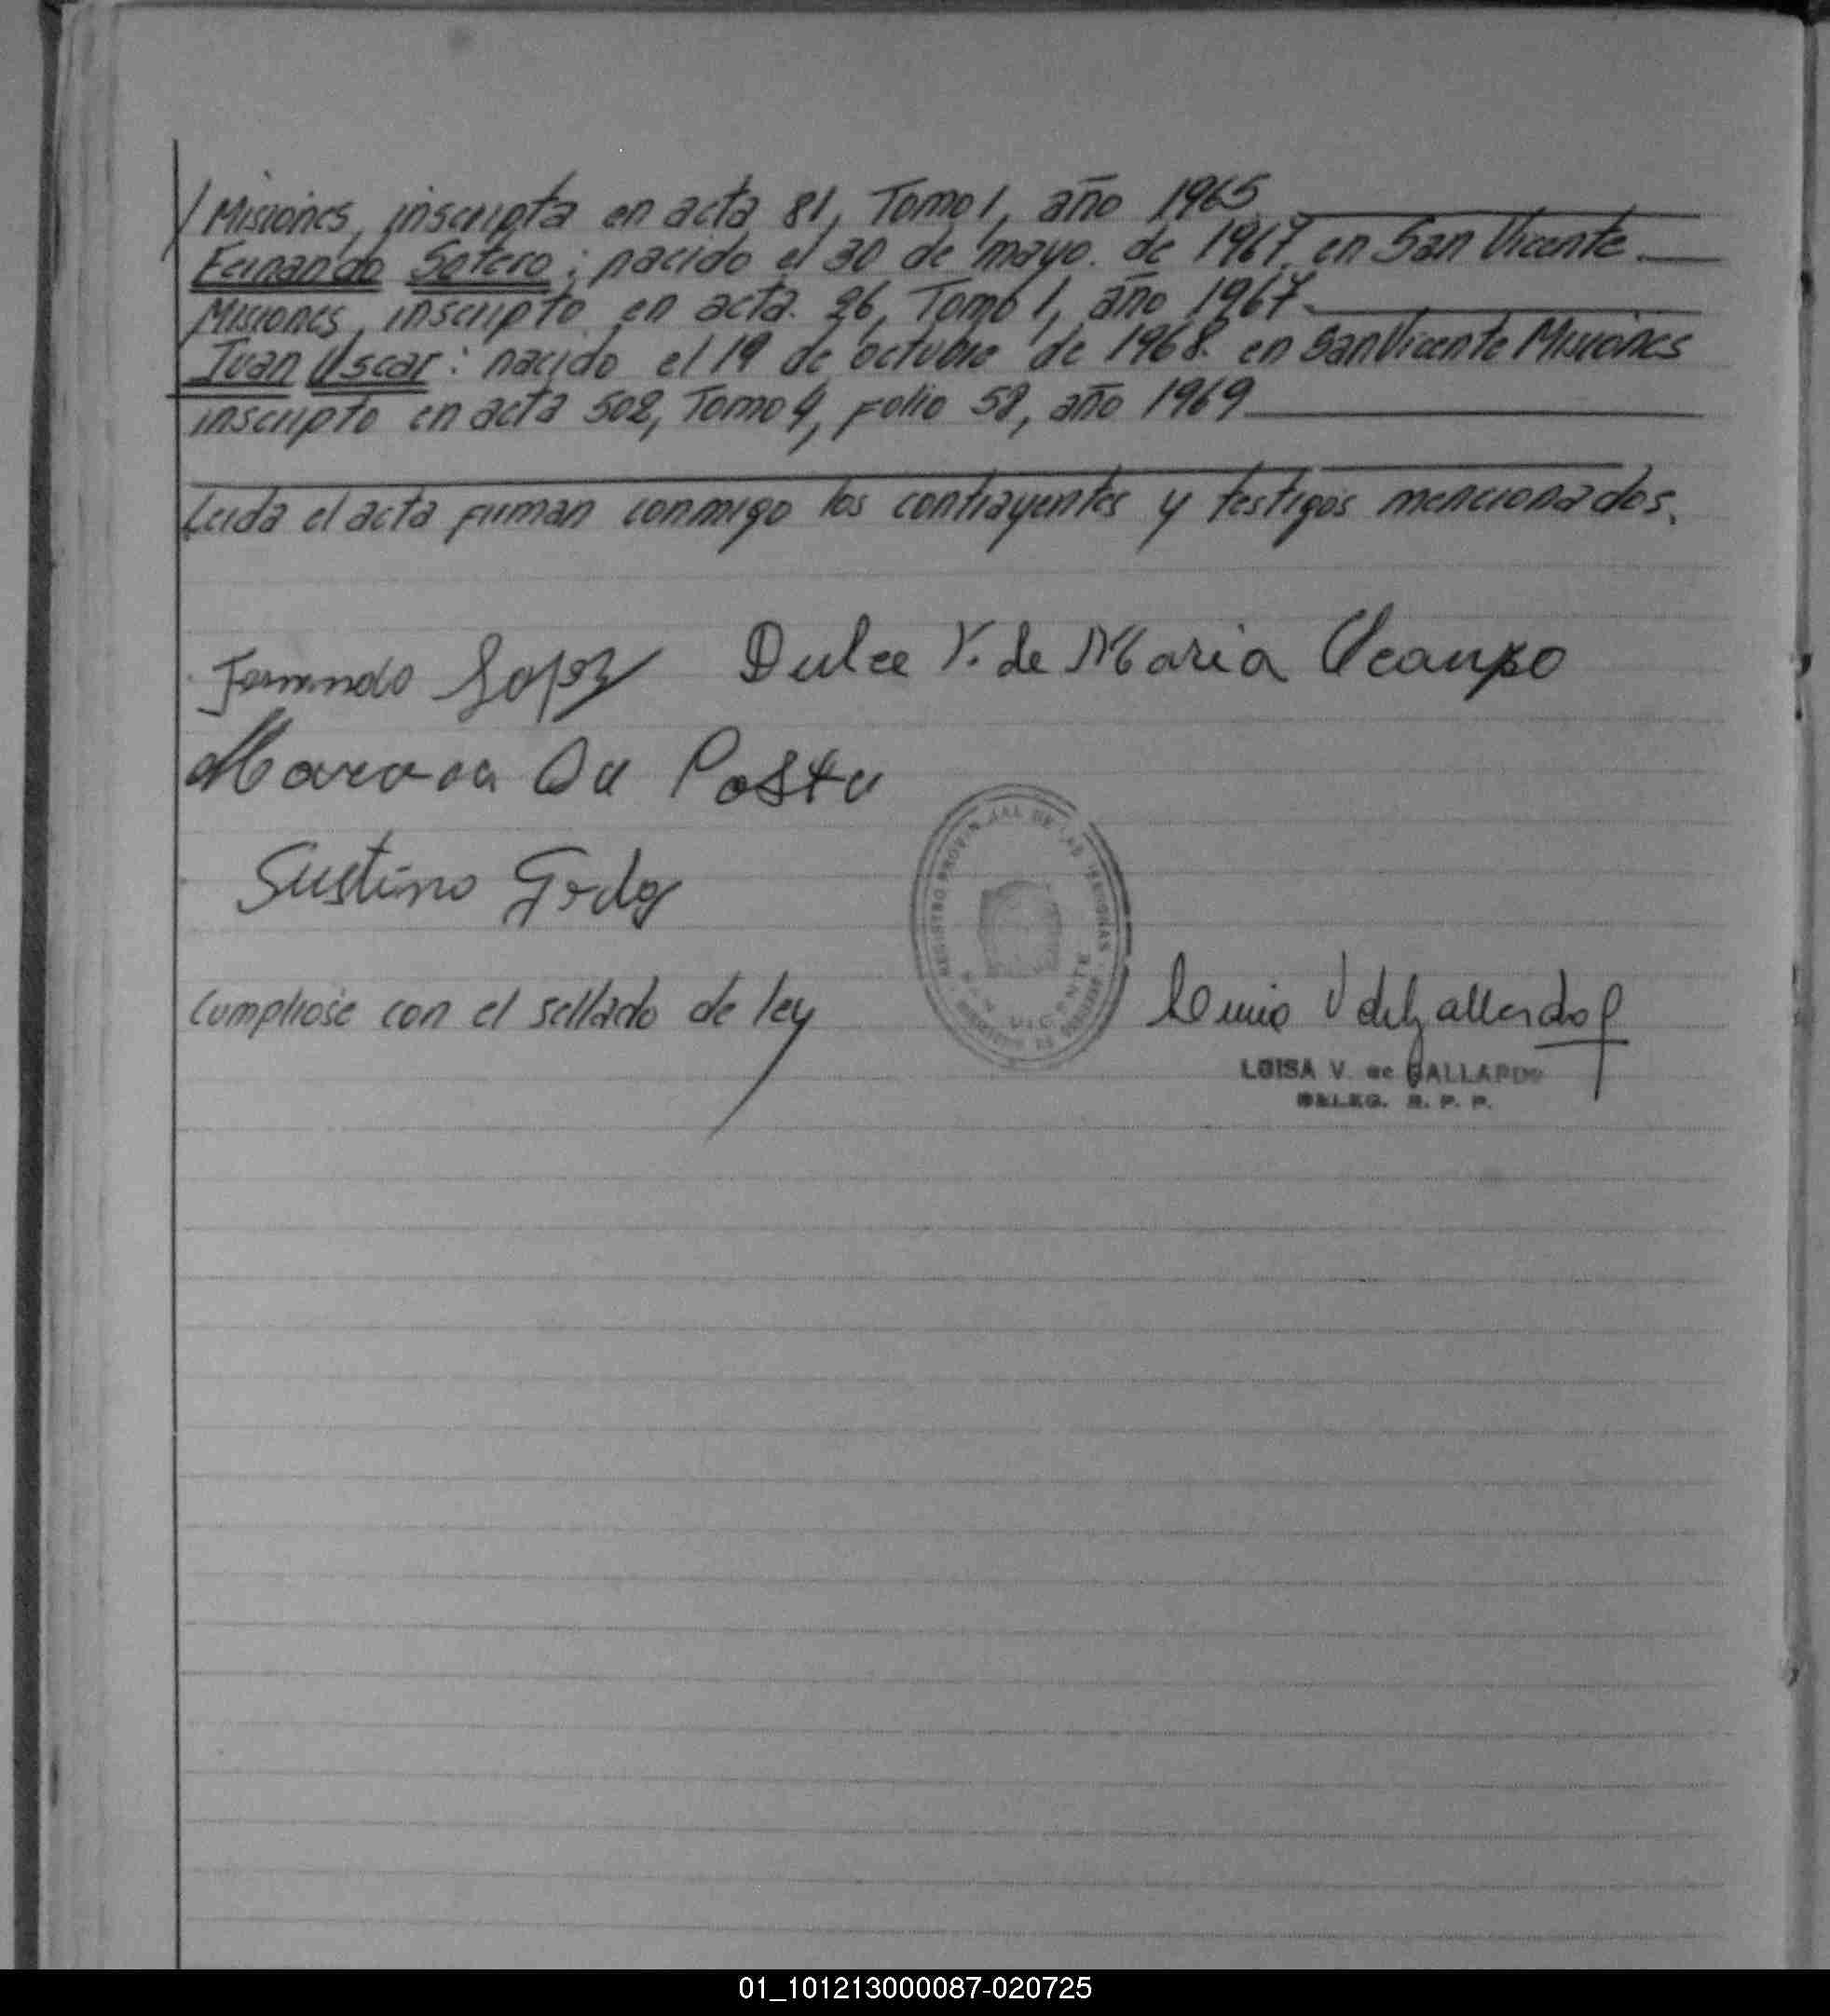 / Misiones, inscripta en acta 81, Tomo 1, año 1965
Fernando Sotero: nacido el 30 de mayo. de 1967, en San Vicente.
Misiones, inscripto en acta. 26, Tomo 1, año 1967.
Juan Oscar: nacido el 19 de octubre de 1968. en San Vicente Misiones
inscripto en acta 502, Tomo 4, folio 52, año 1969
Leida el acta firman conmigo los contrayentes y testigos mencionados.
Fernando Lopez Dulce V. de Maria Ocampo
Da Costa
Sustino
REGISTRO PROVINCIAL DE LAS PERSONAS
SAN VICENTE
Cumpliose con el sellado de ley
V de Gallardo
LUISA V. de GALLARDO
DELEG. R. P. P.
01_101213000087-020725